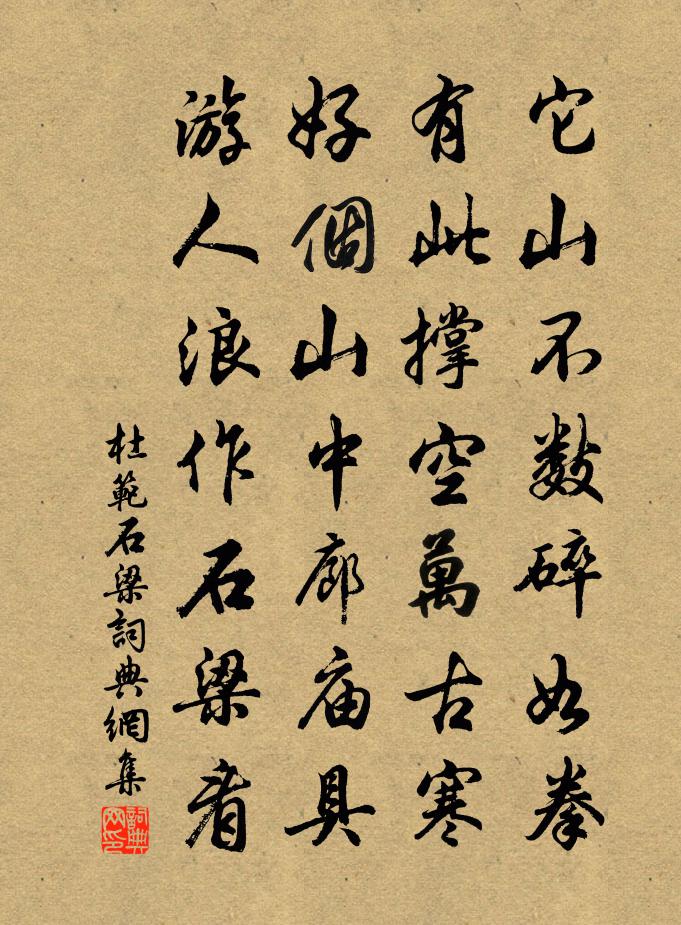 它山不数碎如拳
有此撐空萬古寒
好個山中廊庙具
游人浪作石梁看
杜範石梁詞典網集
詞典網印